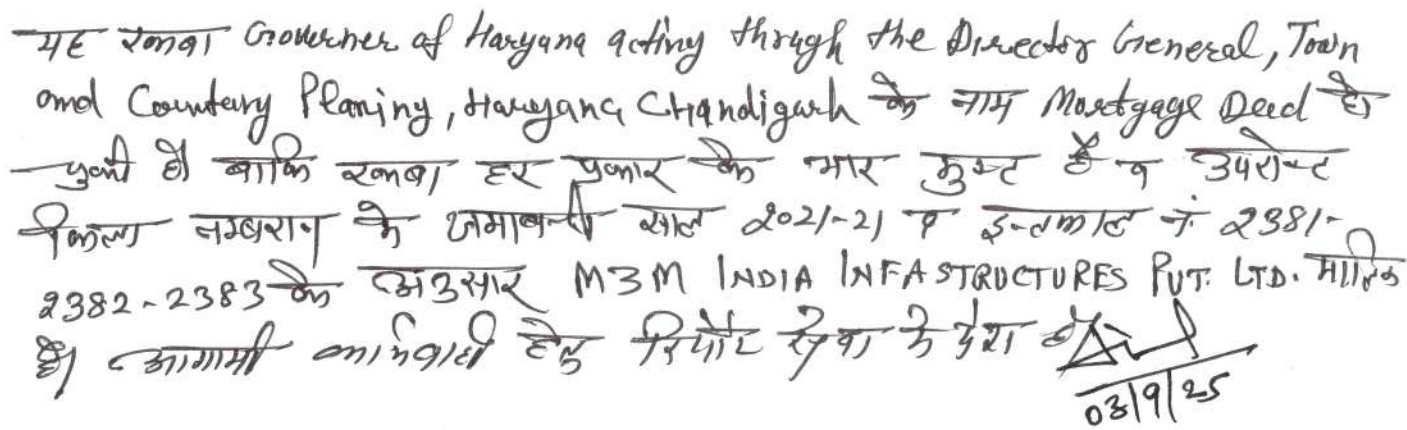 यह रकबा Governer of Haryana acting through the Director General, Town
and Countary Planing, Haryana Chandigarh के नाम Mortgage Deed हो
चुकी है। बाकि रकबा हर प्रकार के भार मुक्त है व उपरोक्त
किला नम्बरान के जमाबन्दी साल 2021-21 व इन्तकाल नं. 2381-
2382-2383 के अनुसार M3M INDIA INFASTRUCTURES PVT. LTD. मालिक
है। आगामी कार्यवाही हेतु रिपोर्ट सेवा में पेश है।
03/9/25